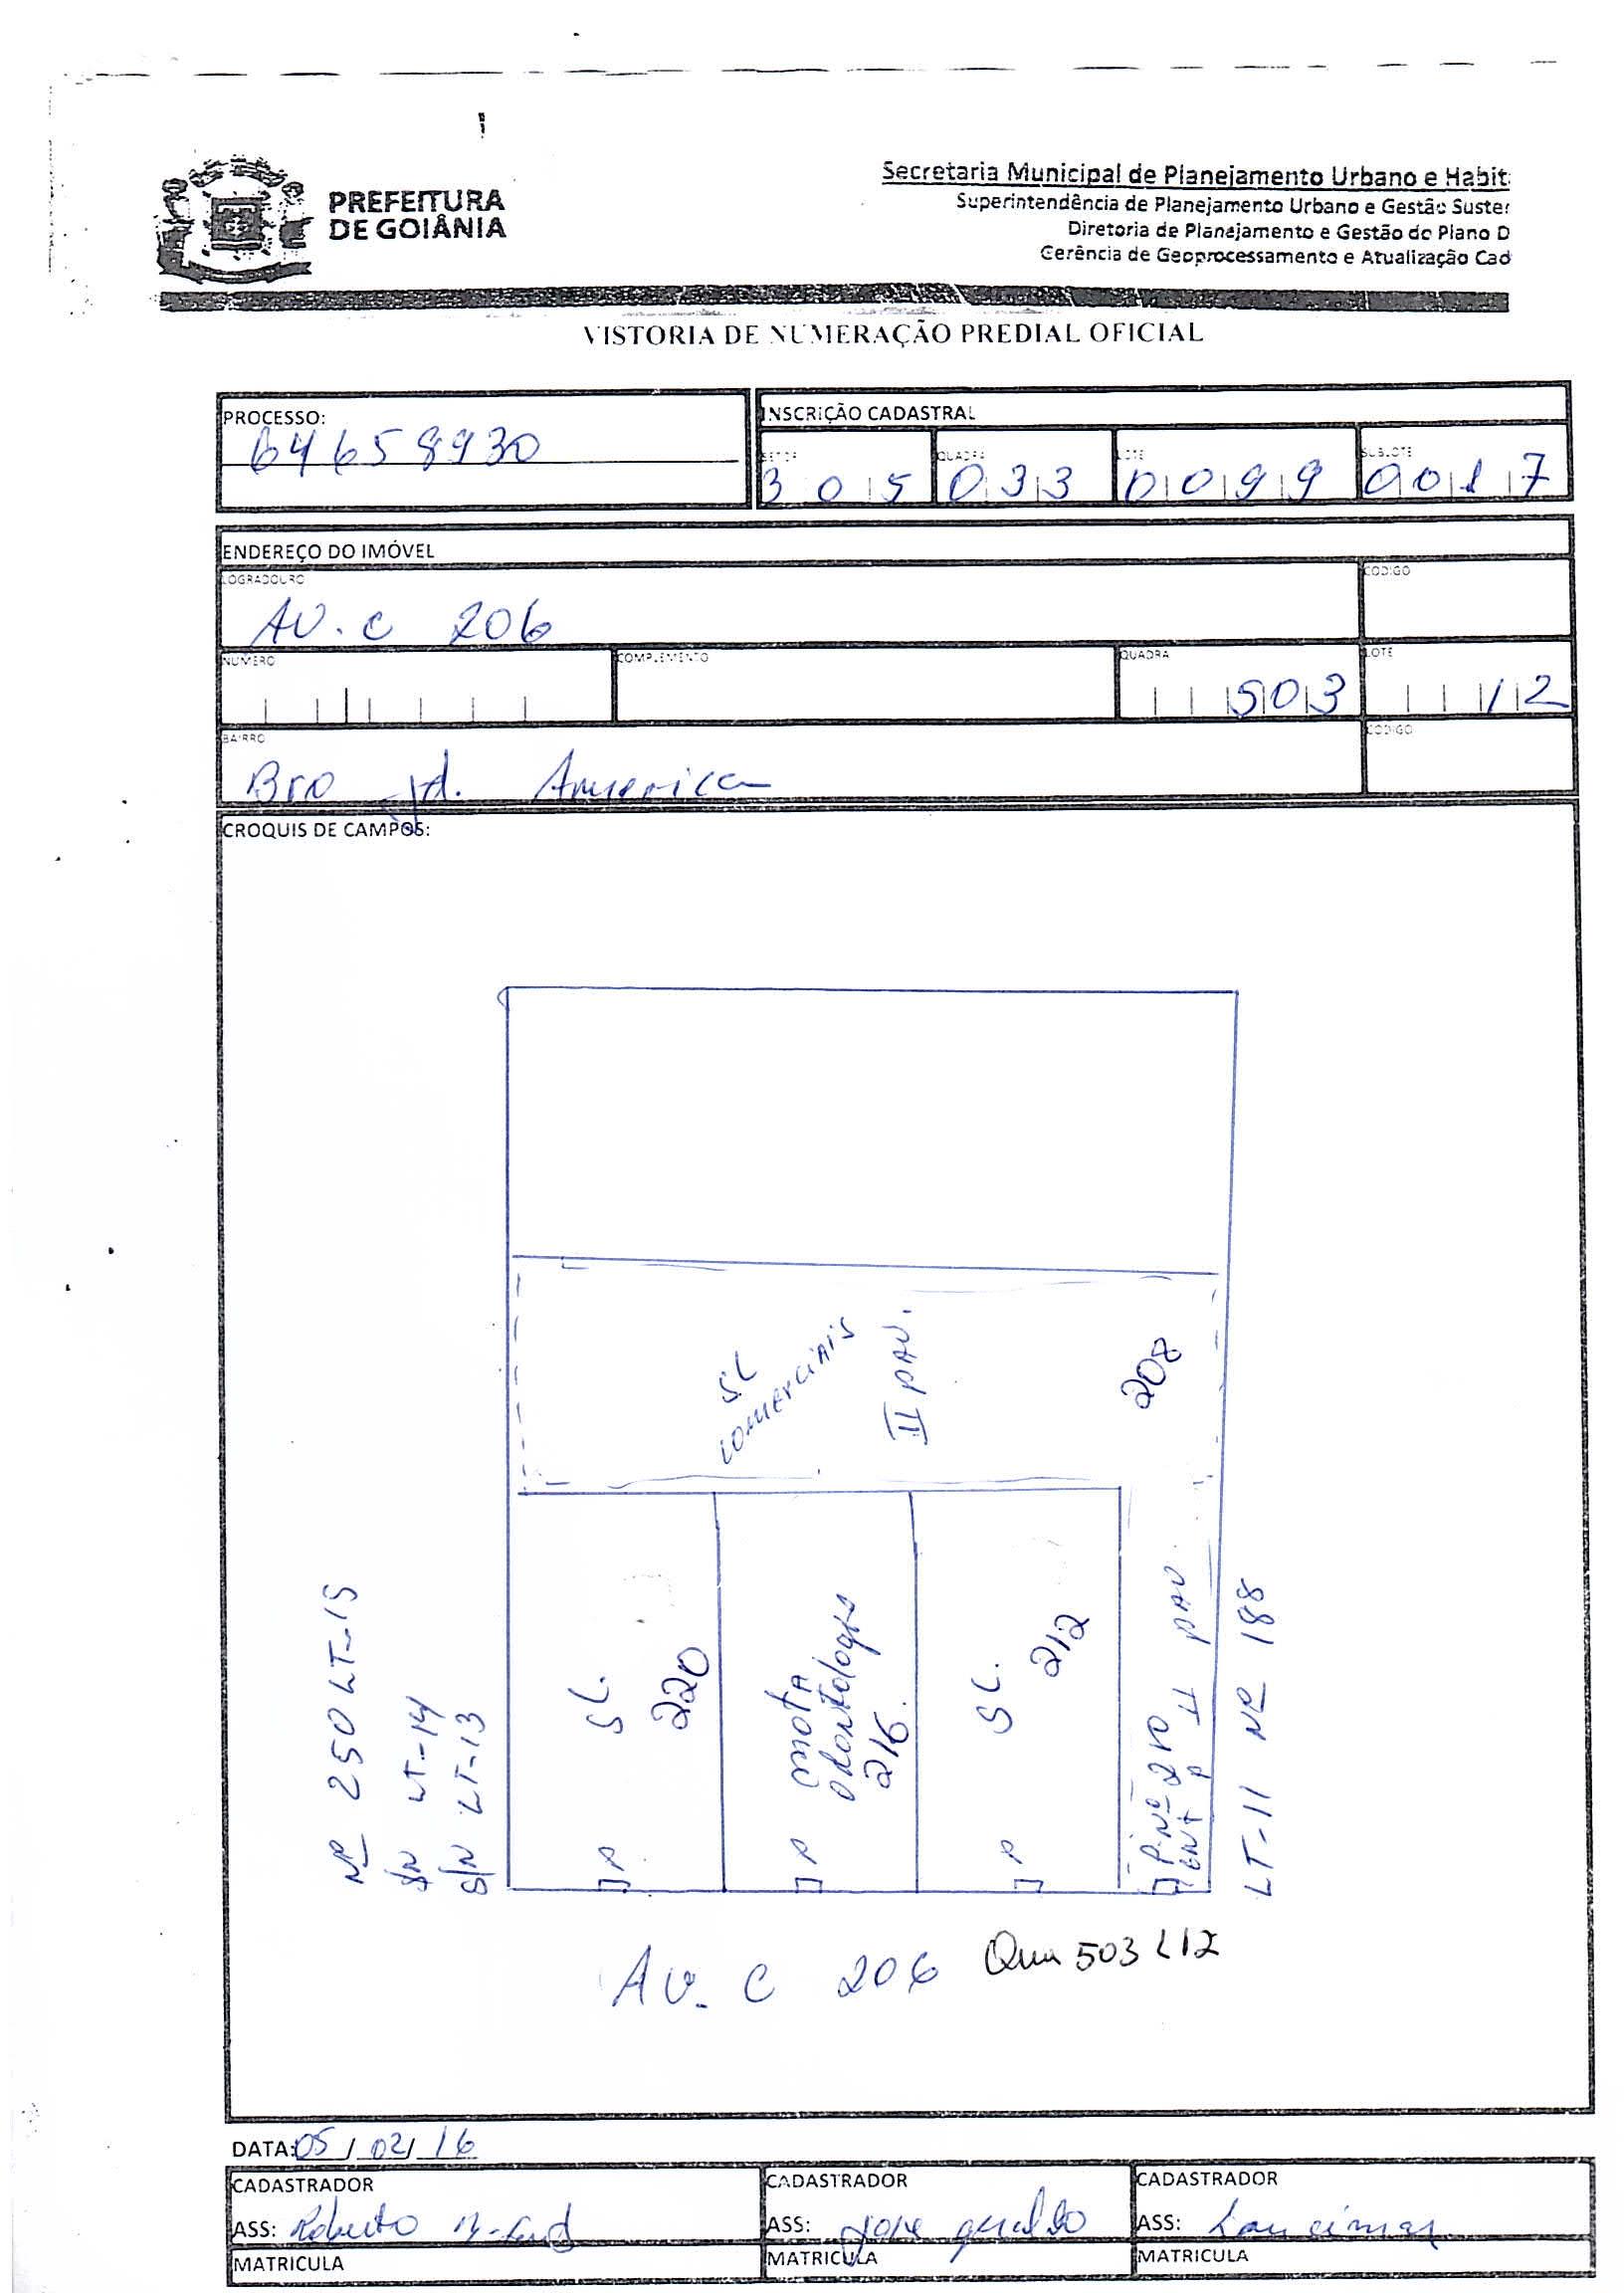 PREFEITURA
DE GOIÂNIA
Secretaria Municipal de Planejamento Urbano e Habit
Superintendência de Planejamento Urbano e Gestão Suster
Diretoria de Planejamento e Gestão do Plano D
Gerência de Geoprocessamento e Atualização Cad
VISTORIA DE NUMERAÇÃO PREDIAL OFICIAL
PROCESSO:
64658930
INSCRIÇÃO CADASTRAL
SETOR QUADRA LOTE SUBLOTE
305 033 0099 0017
ENDEREÇO DO IMÓVEL
LOGRADOURO CODIGO
AV. C 206
NUMERO COMPLEMENTO QUADRA LOTE
503 12
BAIRRO CODIGO
Bro Jd. America
CROQUIS DE CAMPOS:
SL
COMERCIAIS
II PAV.
208
Nº 250 LT-15
S/N LT-14
S/N LT-13
SL.
220
P
Odontologia
216.
P
SL.
212
P
P.Nº 210
ENT P II PAV.
LT-11 Nº 188
AV. C 206 Qua 503 L12
DATA: 05/02/16
CADASTRADOR CADASTRADOR CADASTRADOR
ASS: Roberto ASS: Jose geraldo ASS: Laucimar
MATRICULA MATRICULA MATRICULA